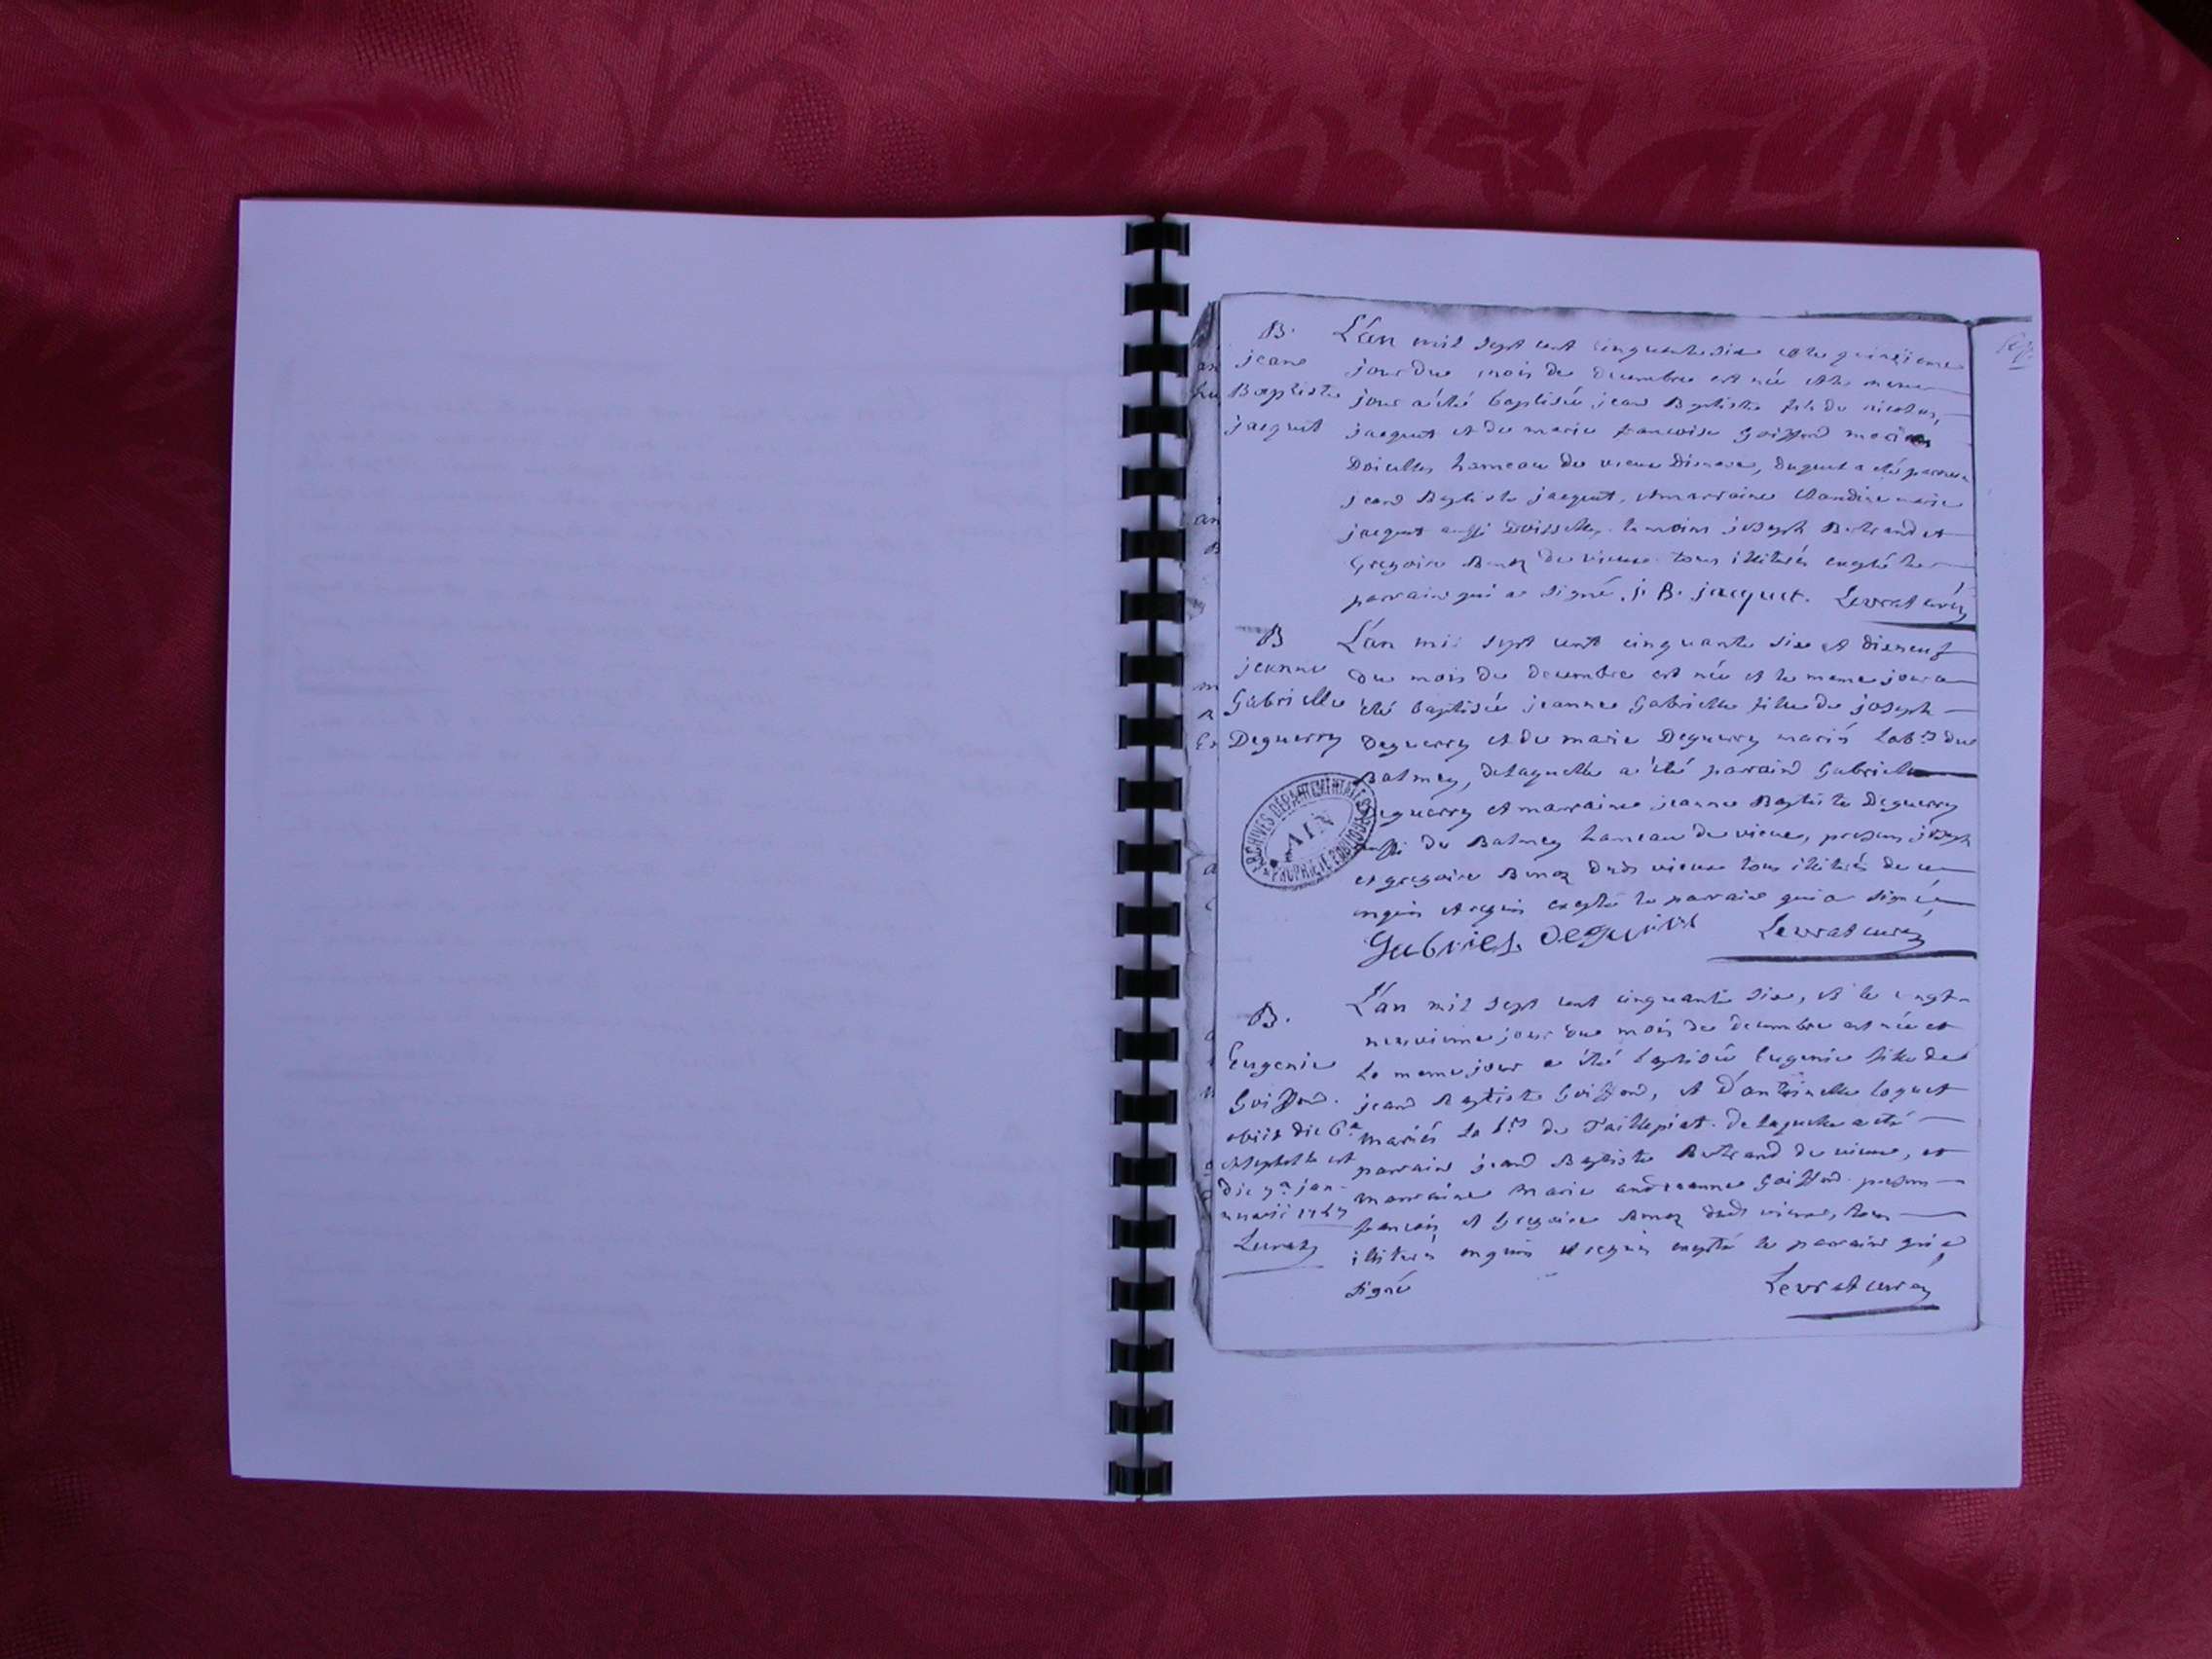 B.
jean
Baptiste
jacquet
L'an mil sept cent cinquante six et le quinzieme
jour du mois de decembre est né et le meme
jour a été baptisé jean Baptiste fils de nicolas
jacquet et de marie francoise Goiffond mariés
hameau de vieux duquel a été parrain
jean Baptiste jacquet, et marraine marie
jacquet aussi temoins joseph Bertrand et
Gregoire de vieux tous illiterés excepté le
parrain qui a signé, j. B. jacquet. Levrat curé
B
jeanne
Gabrielle
Deguerry
L'an mil sept cent cinquante six et disneuf
du mois de decembre est née et le meme jour a
été baptisée jeanne Gabrielle fille de joseph
Deguerry et de marie Deguerry mariés lab.rs du
Balmey, de laquelle a été parrain Gabriel
Deguerry et marraine jeanne Baptiste Deguerry
aussi de Balmey hameau de vieux, presens joseph
et gregoire dud. vieux tous illiterés de ce
enquis et requis excepté le parrain qui a signé
Gabriel Levrat curé
ARCHIVES DÉPARTEMENTALES
AIN
PROPRIÉTÉ PUBLIQUE
B.
Eugenie
Goiffond.
obiit die 6.a
et sepulta est
die 7.a jan-
nuarii 1757
L'an mil sept cent cinquante six, et le vingt-
neuvieme jour du mois de decembre est née et
le meme jour a été baptisée Eugenie fille de
jean Baptiste Goiffond, et d'antoinette
mariés lab.rs de Taillepiat. de laquelle a été
parrain jean Baptiste Bertrand de vieux, et
marraine marie Goiffond. presens
francois et Gregoire dud. vieux, tous
illiterés enquis et requis excepté le parrain qui a
signé Levrat curé